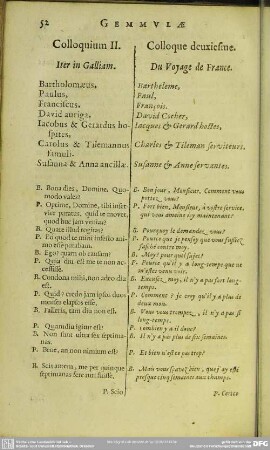 52 GEMMULÆ
Colloquium II.
Iter in Galliam.
Bartholomæus,
Paulus,
Franciscus,
David auriga,
Iacobus & Gerardus ho-
spites,
Carolus & Tilemannus
famuli.
Susanna & Anna ancillæ.
B. Bona dies, Domine, Quo-
modo vales?
P. Optime, Domine, tibi inser-
vire paratus, quid te movet,
quod huc jam venias?
B. Quare illud rogitas?
P. Eo quod te mihi infenso ani-
mo esse putabam.
B. Ego? quam ob causam?
P. Quia diu est me te non
accessisti.
B. Condona mihi, non adeo diu
est.
P. Quid? credo jam ipso duos
menses elapsos esse.
B. Falleris, tam diu non est.
P. Quamdiu igitur est?
B. Non sunt ultra sex septima-
nas.
P. Bene, an non nimium est?
B. Scis autem, me per quinque
septimanas fere
P. Scio
Colloque deuxiesme.
Du Voyage de France.
Barthelome,
Paul,
François,
David Cocher,
Iacques & Gerard hostes,
Charles & Tileman serviteurs.
Susanne & Anne servantes.
B. Bon jour, Monsieur, Comment vous
portez vous?
P. Fort bien, Monsieur, à vostre service,
qui vous amaine icy maintenant?
B. Pourquoy le demandez vous?
P. Pource que je pensoy que vous fussiez
fasché contre moy.
B. Moy? pour quel sujet?
P. Pource qu'il y a long-temps que ne
m'estes venu voir.
B. Excusez, moy, il n'y a pas fort long-
temps.
P. Comment? je croy qu'il y a plus de
deux mois.
B. Vous vous trompez, il n'y a pas si
long-temps.
P. Combien y a il donc?
B. Il n'y a pas plus de six semaines.
P. Et bien n'est ce pas trop?
B. Mais vous sçavez bien, que j'ay esté
presque cinq semaines aux champs.
P.